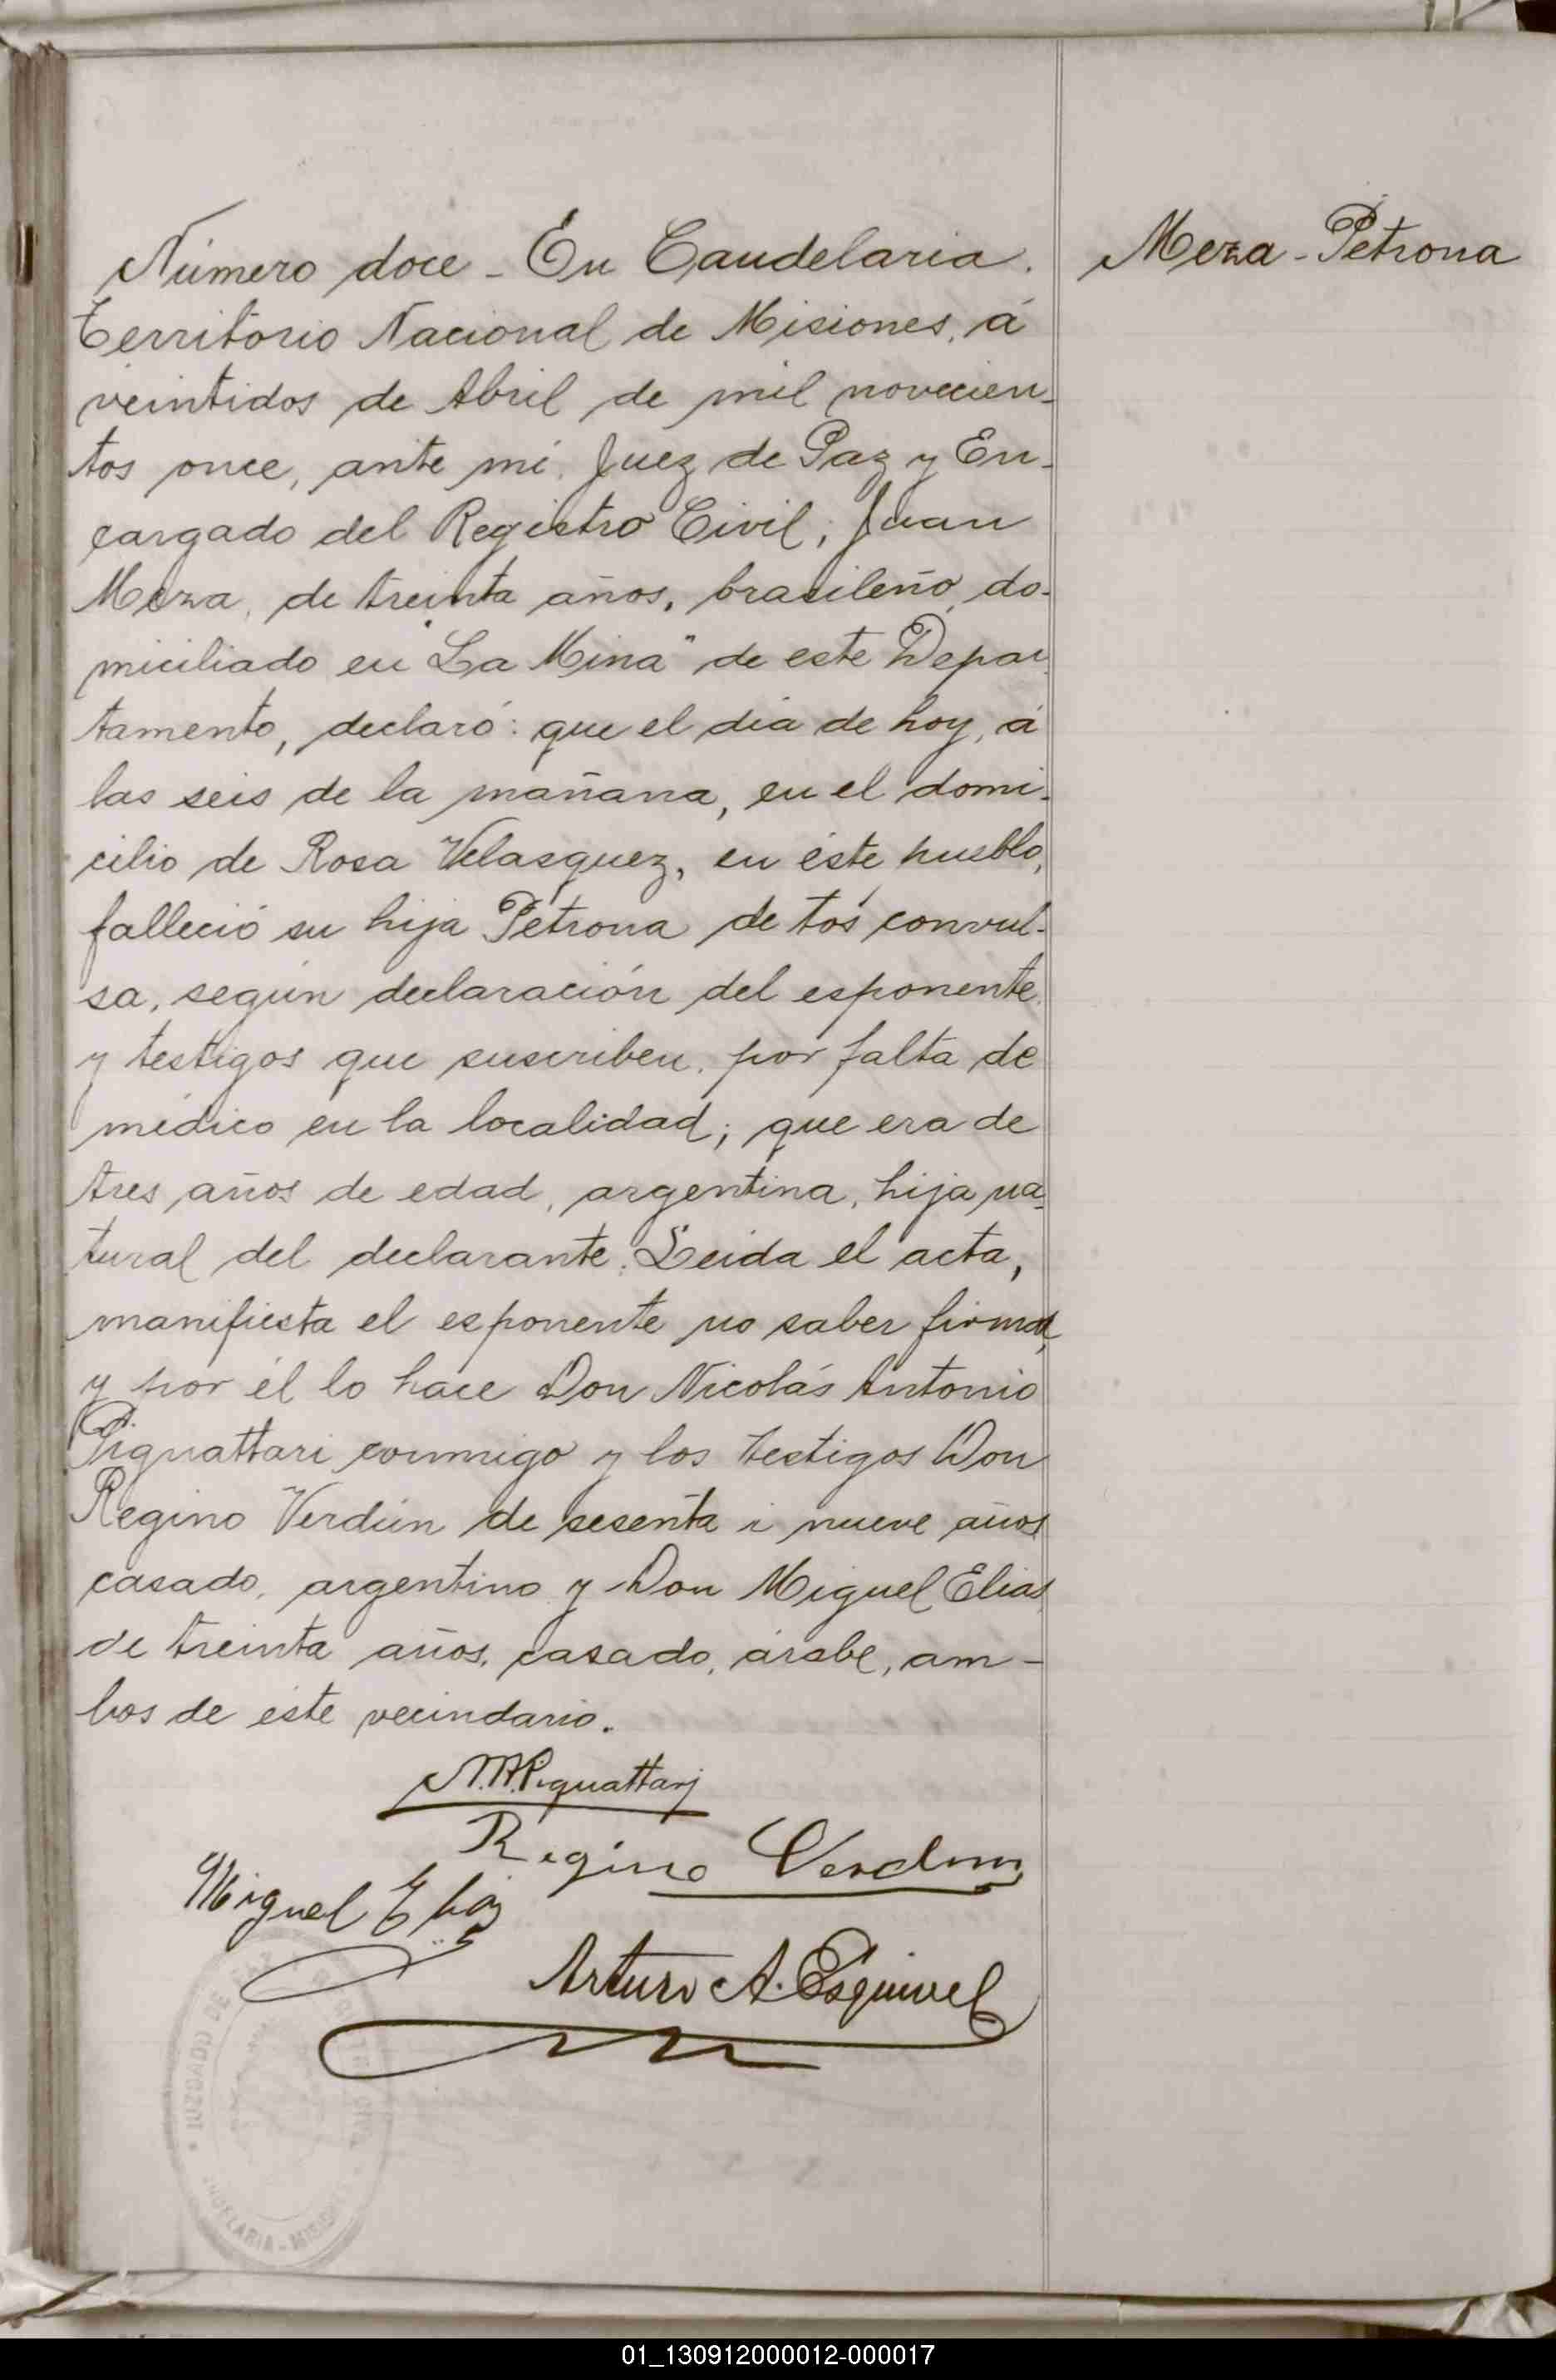 Número doce - En Candelaria.
Meza - Petrona
Territorio Nacional de Misiones, á
veintidos de Abril de mil novecien-
tos once, ante mí, Juez de Paz y En-
cargado del Registro Civil; Juan
Meza, de treinta años, brasileño, do-
miciliado en "La Mina" de este Depar
tamento, declaró: que el día de hoy, á
las seis de la mañana, en el domi-
cilio de Rosa Velasquez, en éste pueblo,
falleció su hija Petrona de tós convul-
sa, según declaración del esponente
y testigos que suscriben, por falta de
médico en la localidad; que era de
tres años de edad, argentina, hija na-
tural del declarante. Leida el acta,
manifiesta el esponente no saber firmar,
y por él lo hace Don Nicolás Antonio
Piguattari conmigo y los testigos Don
Regino Verdún de sesenta i nueve años
casado, argentino y Don Miguel Elias,
de treinta años, casado, árabe, am-
bos de éste vecindario.
N.A.Piguattarj
Regino Verdun
Miguel Elias
Arturo A. Esquivel
JUZGADO DE PAZ
CIVIL
CANDELARIA - MISIONES
01_130912000012-000017